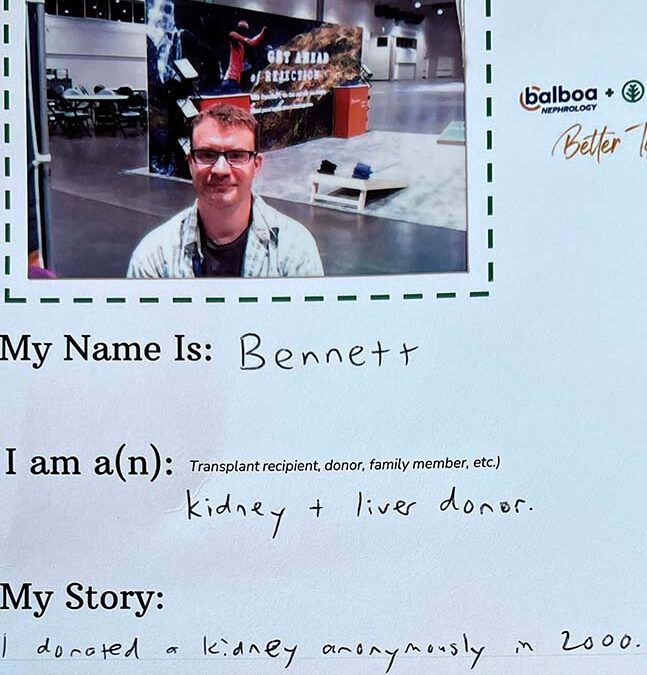 GET AHEAD
of REJECTION
balboa +
NEPHROLOGY
Better
My Name Is: Bennett
I am a(n): Transplant recipient, donor, family member, etc.)
kidney + liver donor.
My Story:
I donated a kidney anonymously in 2000.